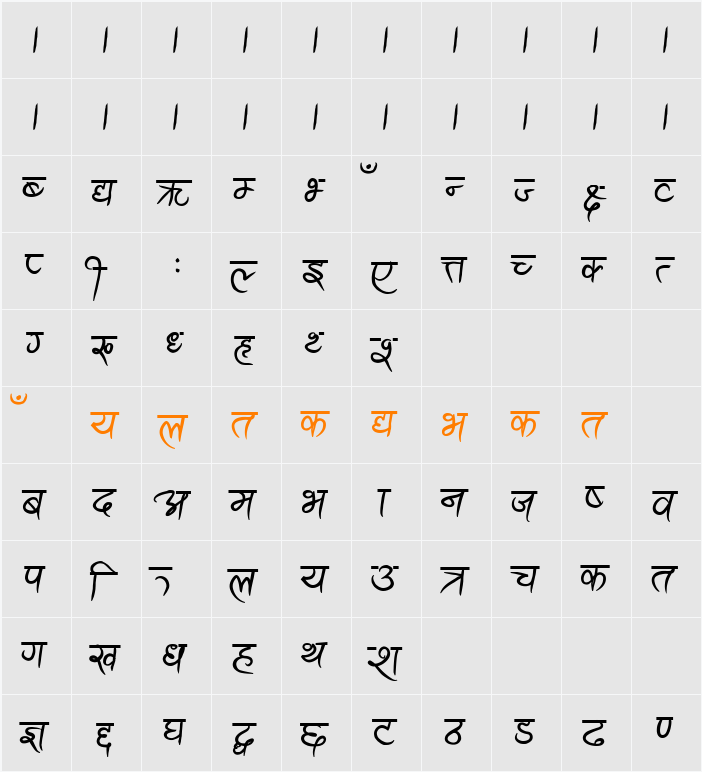 । । । । । । । । । ।
। । । । । । । । । ।
ब्‍ द्य ऋ म्‍ भ्‍ ँ न्‍ ज्‍ क्ष्‍ व्‍
ी ः ल्‍ इ ए त्त च्‍ क्‍ त्‍
ग्‍ रू ध्‍ हृ थ्‍
ँ य ल त क द्य भ क त
ब द अ म भ ा न ज ष्‍ व
प ि ल य उ त्र च क त
ग ख ध ह थ श
ज्ञ द्द घ द्ध छ ट ठ ड ढ ण्‍